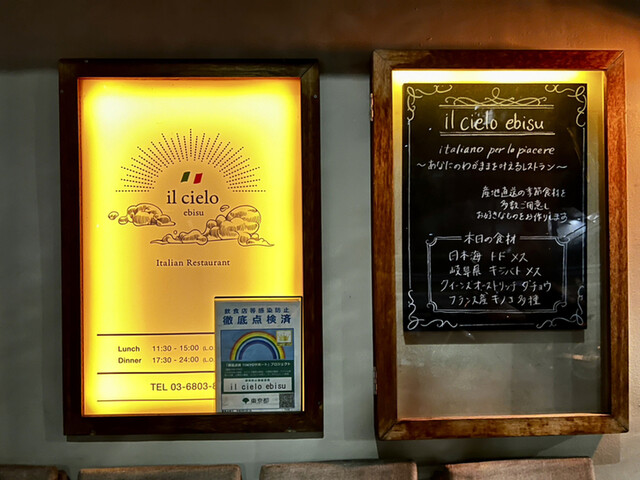 il cielo
ebisu
Italian Restaurant
Lunch 11:30 - 15:00
Dinner 17:30 - 24:00
TEL 03-6803-
飲食店等感染防止
徹底点検済
il cielo ebisu
東京都
il cielo ebisu
italiano per la piacere
～あなたのわがままを叶えるレストラン～
産地直送の季節食材を
多数ご用意し
お好きなものをお作りします
本日の食材
日本海 トド メス
岐阜県 キジバト メス
クイーンズオーストリッチ ダチョウ
フランス産 キノコ 多種